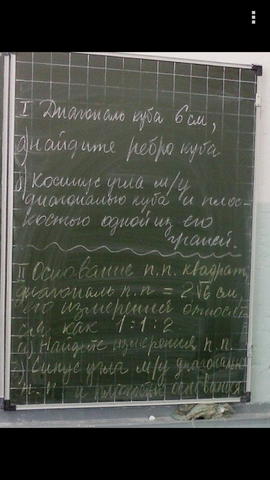 I Диагональ куба 6 см,
а) найдите ребро куба
б) косинус угла м/у
диагональю куба и плос-
костью одной из его
граней.
II Основание п.п. квадрат,
диагональ п.п = 2√6 см,
его измерения относят
ся, как 1:1:2
а) Найдите измерения п.п.
Синус угла м/у диагональю
п.п. и плоскостью основания